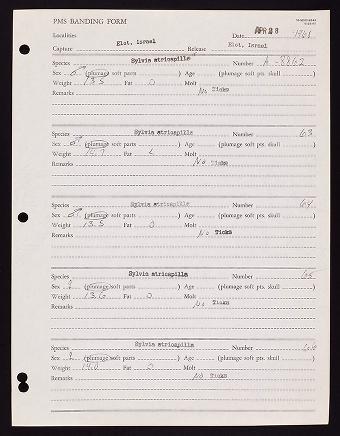 PMS BANDING FORM
Localities Date APR 28 1968
Capture Elot, Israel Release Elot, Israel
Species Sylvia atricapilla Number A-8862
Sex ♂ (plumage soft parts ) Age (plumage soft pts. skull )
Weight Fat O Molt
Remarks No Ticks
Species Sylvia atricapilla Number 63
Sex ♂ (plumage soft parts ) Age (plumage soft pts. skull )
Weight Fat L Molt
Remarks No Ticks
Species Sylvia atricapilla Number 64
Sex ♂ (plumage soft parts ) Age (plumage soft pts. skull )
Weight 13.5 Fat O Molt
Remarks No Ticks
Species Sylvia atricapilla Number 65
Sex ♀ (plumage soft parts ) Age (plumage soft pts. skull )
Weight 13.6 Fat O Molt
Remarks No Ticks
Species Sylvia atricapilla Number 66
Sex ♀ (plumage soft parts ) Age (plumage soft pts. skull )
Weight 14.0 Fat O Molt
Remarks No Ticks